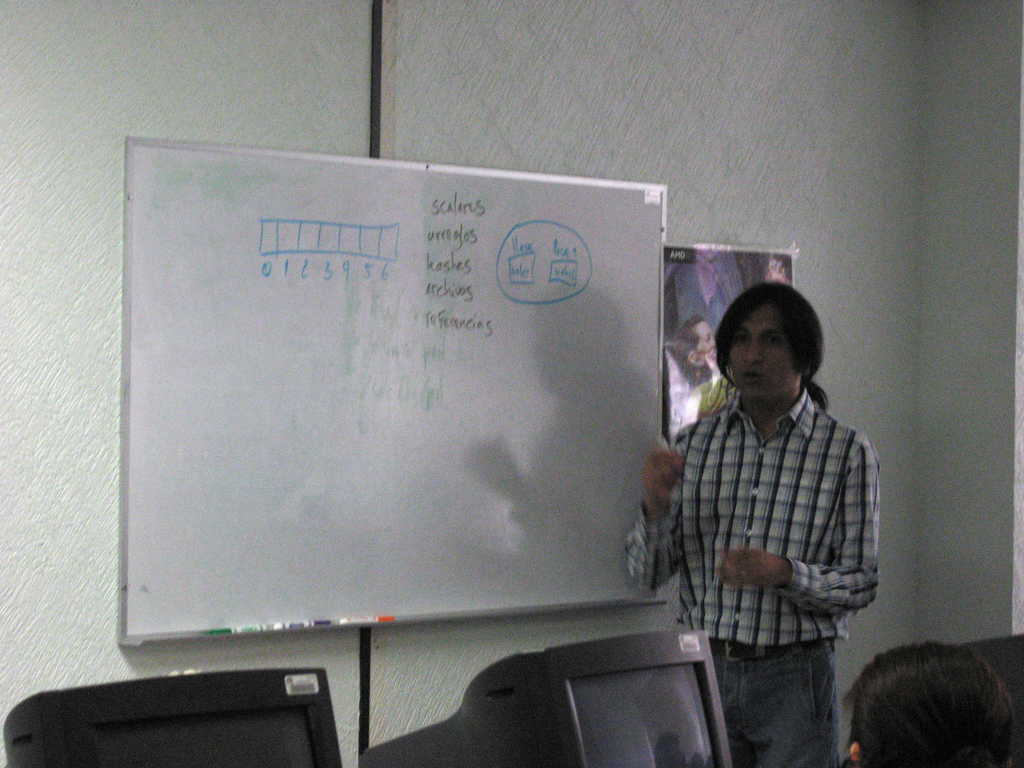 scalares
arreglos
hashes
archivos
referencias
0 1 2 3 4 5 6
llave
valor
AMD